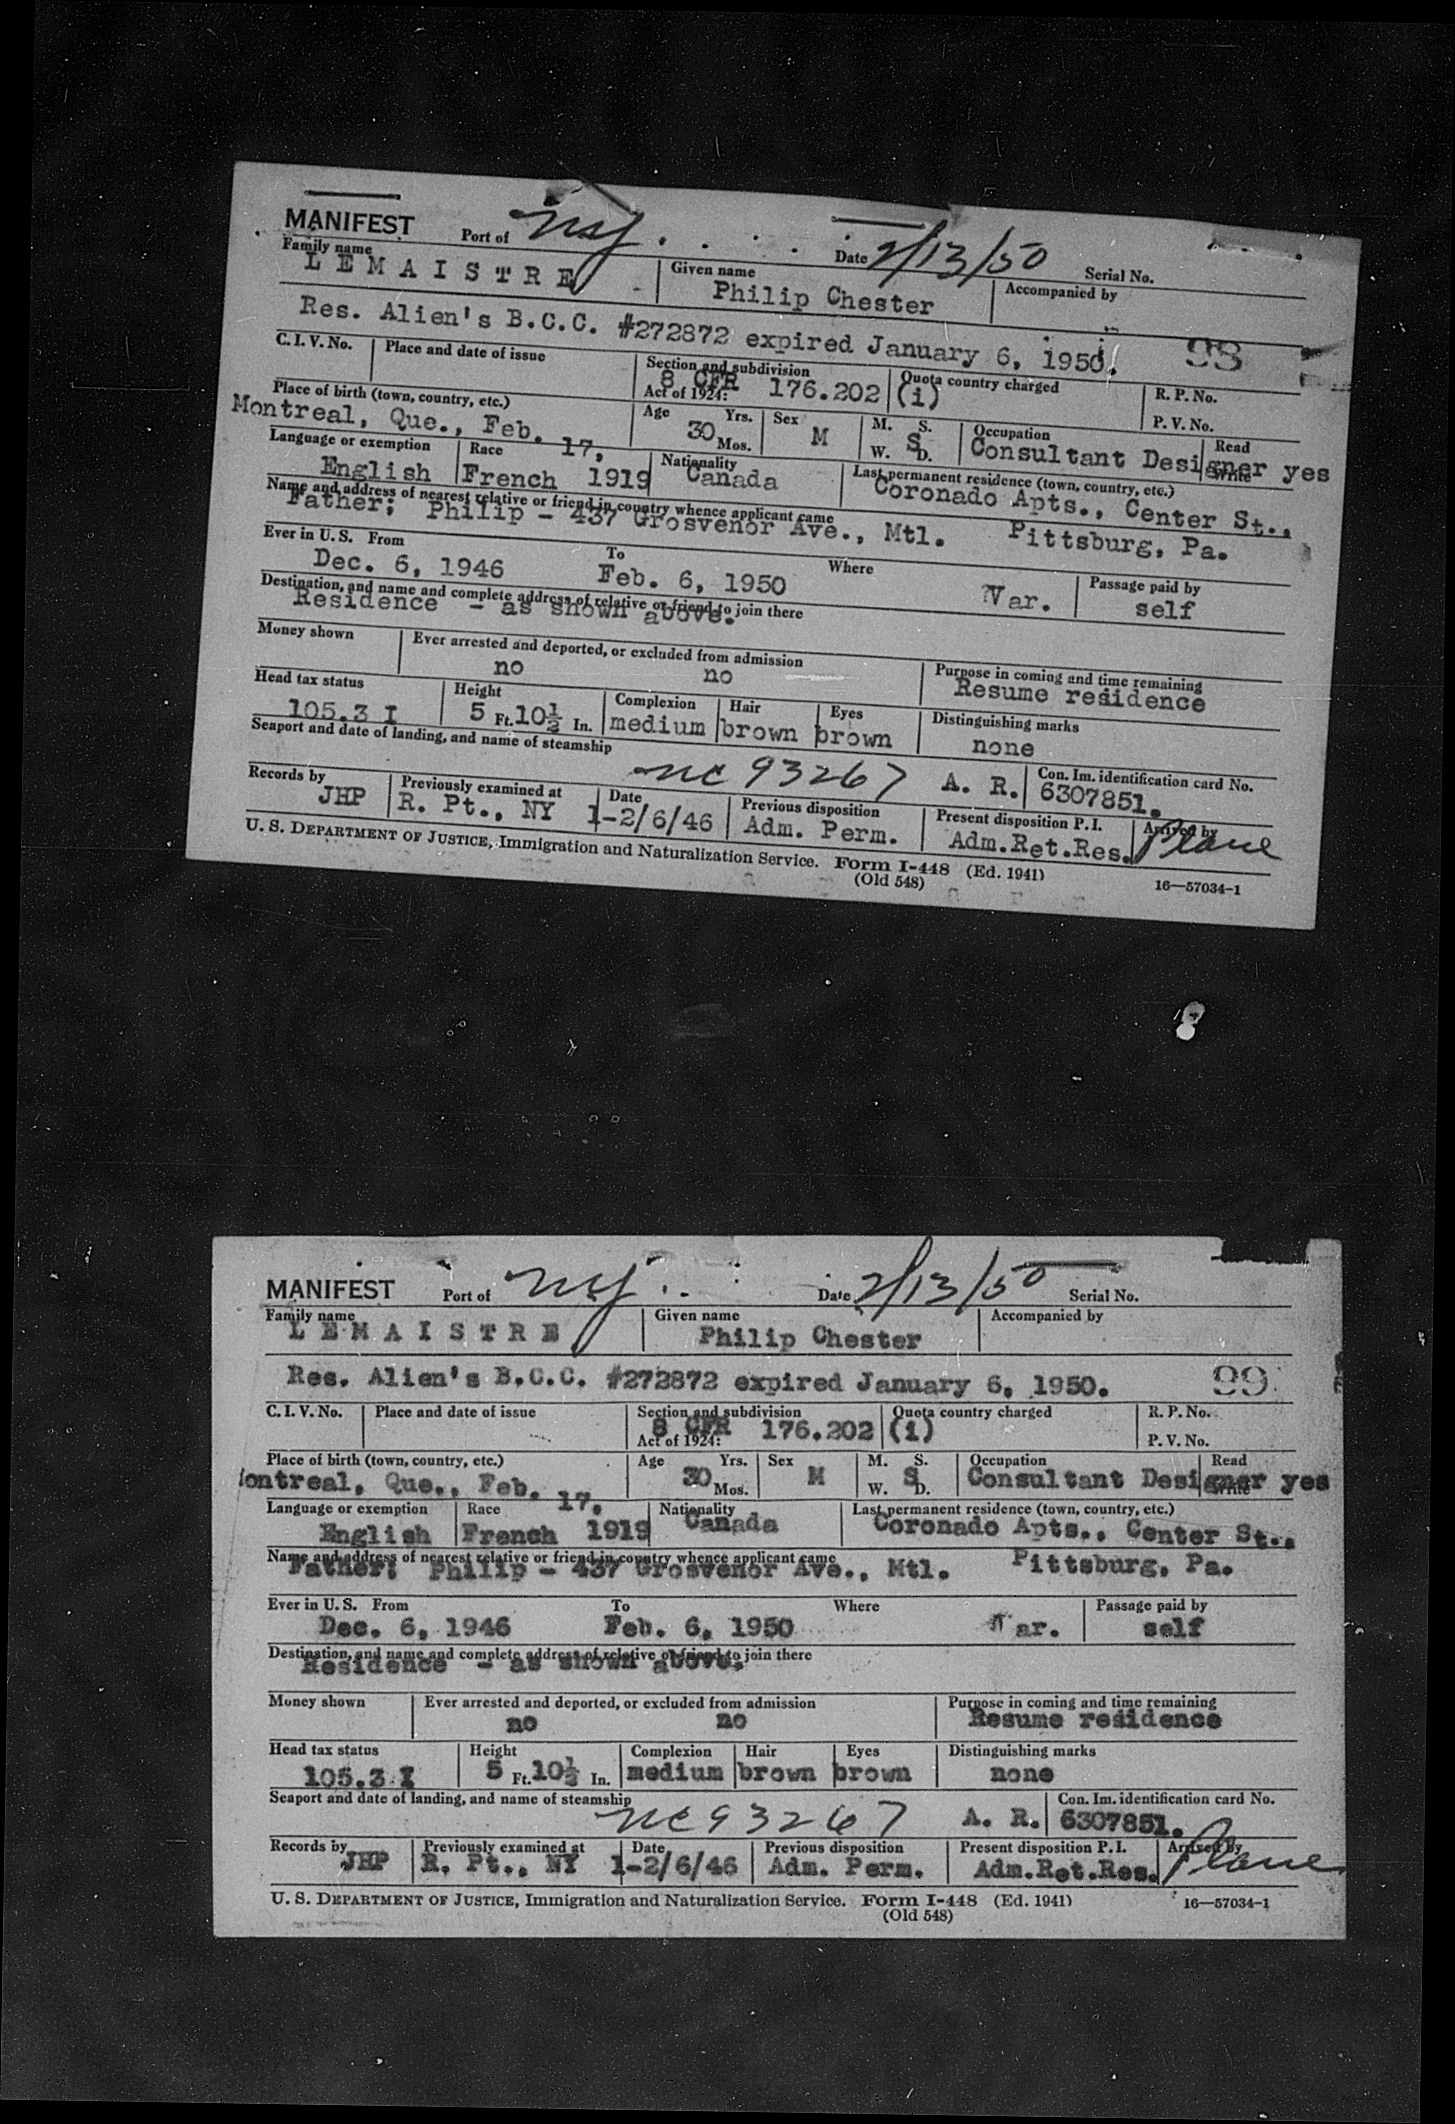 MANIFEST Port of Date 2/13/50 Serial No.
Family name LEMAISTRE Given name Philip Chester Accompanied by
Res. Alien's B.C.C. #272872 expired January 6, 1950. 98
C. I. V. No. Place and date of issue Section and subdivision Act of 1924: 8 CFR 176.202 Quota country charged (i) R. P. No. P. V. No.
Place of birth (town, country, etc.) Montreal, Que., Feb. 17, 1919 Age 30 Yrs. Mos. Sex M M. S. W. D. S Occupation Consultant Designer Read Write yes
Language or exemption English Race French Nationality Canada Last permanent residence (town, country, etc.) Coronado Apts., Center St., Pittsburg, Pa.
Name and address of nearest relative or friend in country whence applicant came
Father; Philip - 437 Grosvenor Ave., Mtl.
Ever in U. S. From Dec. 6, 1946 To Feb. 6, 1950 Where Var. Passage paid by self
Destination, and name and complete address of relative or friend to join there
Residence - as shown above.
Money shown Ever arrested and deported, or excluded from admission no no Purpose in coming and time remaining Resume residence
Head tax status 105.3 I Height 5 Ft. 10½ In. Complexion medium Hair brown Eyes brown Distinguishing marks none
Seaport and date of landing, and name of steamship NC 93267 A. R. Con. Im. identification card No. 6307851.
Records by JHP Previously examined at R. Pt., NY Date 1-2/6/46 Previous disposition Adm. Perm. Present disposition P. I. Adm.Ret.Res. Arrived by Plane
U. S. DEPARTMENT OF JUSTICE, Immigration and Naturalization Service. Form I-448 (Ed. 1941) 16—57034-1
(Old 548)
MANIFEST Port of Date 2/13/50 Serial No.
Family name LEMAISTRE Given name Philip Chester Accompanied by
Res. Alien's B.C.C. #272872 expired January 6, 1950. 99
C. I. V. No. Place and date of issue Section and subdivision Act of 1924: 8 CFR 176.202 Quota country charged (i) R. P. No. P. V. No.
Place of birth (town, country, etc.) ontreal, Que., Feb. 17, 1919 Age 30 Yrs. Mos. Sex M M. S. W. D. S Occupation Consultant Designer Read Write yes
Language or exemption English Race French Nationality Canada Last permanent residence (town, country, etc.) Coronado Apts., Center St., Pittsburg, Pa.
Name and address of nearest relative or friend in country whence applicant came
Father; Philip - 437 Grosvenor Ave., Mtl.
Ever in U. S. From Dec. 6, 1946 To Feb. 6, 1950 Where Var. Passage paid by self
Destination, and name and complete address of relative or friend to join there
Residence - as shown above.
Money shown Ever arrested and deported, or excluded from admission no no Purpose in coming and time remaining Resume residence
Head tax status 105.3 I Height 5 Ft. 10½ In. Complexion medium Hair brown Eyes brown Distinguishing marks none
Seaport and date of landing, and name of steamship NC 93267 A. R. Con. Im. identification card No. 6307851.
Records by JHP Previously examined at R. Pt., NY Date 1-2/6/46 Previous disposition Adm. Perm. Present disposition P. I. Adm.Ret.Res. Arrived by Plane
U. S. DEPARTMENT OF JUSTICE, Immigration and Naturalization Service. Form I-448 (Ed. 1941) 16—57034-1
(Old 548)